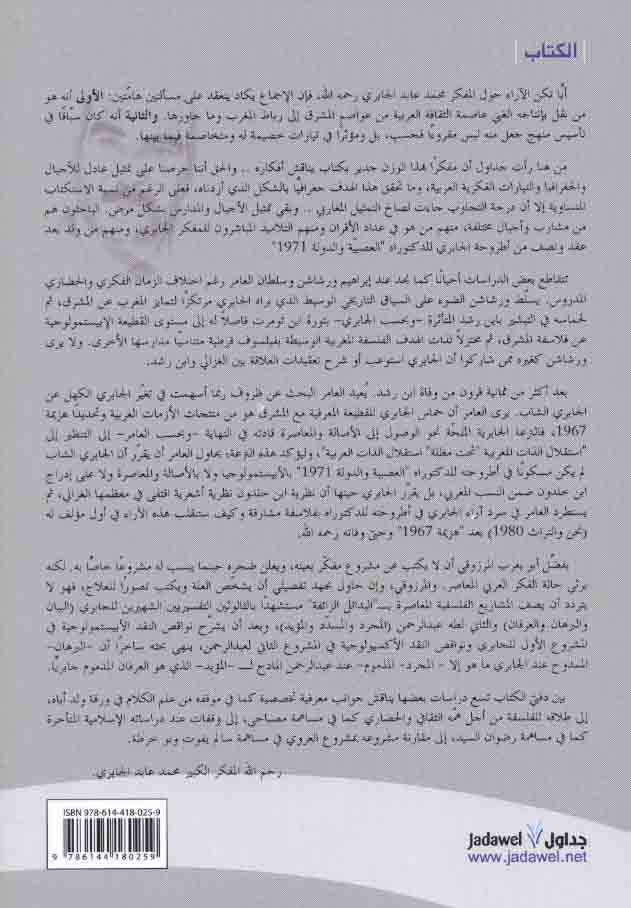 الكتاب
أيًا تكن الآراء حول المفكر محمد عابد الجابري رحمه الله، فإن الإجماع يكاد ينعقد على مسألتين هامّتين: الأولى أنه هو
من نقل بإنتاجه الغني عاصمة الثقافة العربية من عواصم المشرق إلى رباط المغرب وما جاورها. والثانية أنه كان سبّاقًا في
تأسيس منهج جعل منه ليس مقروءًا فحسب، بل ومؤثرًا في تيارات خصيمة له ومتخاصمة فيما بينها.
من هنا رأت جداول أن مفكرًا بهذا الوزن جدير بكتاب يناقش أفكاره .. والحق أننا حرصنا على تمثيل عادل للأجيال
والجغرافيا والتيارات الفكرية العربية، وما تحقق هذا الهدف جغرافيًا بالشكل الذي أردناه، فعلى الرغم من نسبة الاستكتاب
المتساوية إلا أن درجة التجاوب جاءت لصالح التمثيل المغاربي .. وبقي تمثيل الأجيال والمدارس بشكل مرض. الباحثون هم
من مشارب وأجيال مختلفة، منهم من هو في عداد الأقران ومنهم التلاميذ المباشرون للمفكر الجابري، ومنهم من ولد بعد
عقد ونصف من أطروحة الجابري للدكتوراه "العصبيّة والدولة 1971"
تتقاطع بعض الدراسات أحيانًا كما نجد عند إبراهيم ورشاشن وسلطان العامر رغم اختلاف الزمان الفكري والحضاري
المدروس. يسلّط ورشاشن الضوء على السياق التاريخي الوسيط الذي يراه الجابري مرتكزًا لتمايز المغرب عن المشرق، ثم
لحماسه في التبشير بابن رشد المتأثرة -وبحسب الجابري- بثورة ابن تومرت فاصلًا له إلى مستوى القطيعة الإبيستمولوجية
عن فلاسفة المشرق، ثم مختزلًا لذات الهدف الفلسفة المغربية الوسيطة بفيلسوف قرطبة متناسيًا مدارسها الأخرى. ولا يرى
ورشاشن كغيره ممن شاركوا أن الجابري استوعب أو شرح تعقيدات العلاقة بين الغزالي وابن رشد.
بعد أكثر من ثمانية قرون من وفاة ابن رشد. يُعيد العامر البحث عن ظروف ربما أسهمت في تغيّر الجابري الكهل عن
الجابري الشاب. يرى العامر أن حماس الجابري للقطيعة المعرفية مع المشرق هو من منتجات الأزمات العربية وتحديدًا هزيمة
1967، فالنزعة الجابرية الملحّة نحو الوصول إلى الأصالة والمعاصرة قادته في النهاية -وبحسب العامر- إلى التنظير إلى
"استقلال الذات المغربية "تحت مظلة" استقلال الذات العربية"، وليؤكد هذه النزعة، يحاول العامر أن يقرّر أن الجابري الشاب
لم يكن مسكونًا في أطروحته للدكتوراه "العصبية والدولة 1971" بالأبيستمولوجيا ولا بالأصالة والمعاصرة ولا على إدراج
ابن خلدون ضمن النسب المغربي، بل يقرر الجابري حينها أن نظرية ابن خلدون نظرية أشعرية اقتفى في معظمها الغزالي، ثم
يستطرد العامر في سرد آراء الجابري في أطروحته للدكتوراه بفلاسفة مشارقة وكيف ستنقلب هذه الآراء في أول مؤلف له
(نحن والتراث 1980) بعد "هزيمة 1967" وحتى وفاته رحمه الله.
يفضّل أبو يعرب المرزوقي أن لا يكتب عن مشروع مفكّر بعينه، ويعلن ضجره حينما ينسب له مشروعًا خاصًا به. لكنه
يرثي حالة الفكر العربي المعاصر. والمرزوقي، وإن حاول بجهد تفصيلي أن يشخّص العلة ويكتب تصورًا للعلاج، فهو لا
يتردد أن يصف المشاريع الفلسفية المعاصرة بـ"البدائل الزائفة" مستشهدًا بالثالوثين التفسيريين الشهيرين للجابري (البيان
والبرهان والعرفان) والثاني لطه عبدالرحمن (المجرد والمسدّد والمؤيد)، وبعد أن يشرّح نواقص النقد الأبيستمولوجية في
المشروع الأول للجابري ونواقص النقد الأكسيولوجية في المشروع الثاني لعبدالرحمن، ينهي بحثه ساخرًا أن -البرهان-
الممدوح عند الجابري ما هو إلا - المجرد- المذموم- عند عبدالرحمن المادح لـ -المؤيد- الذي هو العرفان المذموم جابريًا.
بين دفتي الكتاب تسع دراسات بعضها يناقش جوانب معرفية تخصصية كما في موقفه من علم الكلام في ورقة ولد أباه،
إلى طلاقه للفلسفة من أجل همّه الثقافي والحضاري كما في مساهمة مصباحي، إلى وقفات عند دراساته الإسلامية المتأخرة
كما في مساهمة رضوان السيد، إلى مقارنة مشروعه بمشروع العروي في مساهمة سالم يفوت وبو خرطة.
رحم الله المفكر الكبير محمد عابد الجابري.
ISBN 978-614-418-025-9
9 786144 180259
جداول Jadawel
www.jadawel.net